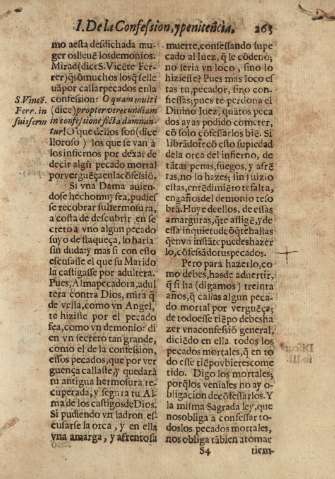 I. De la Confession, y penitẽcia. 263
mo a esta desdichada mu
ger oslleuẽ los demonios:
Mirad (dize S. Vicẽte Fe-
rrer) q̃
S. Vincẽt.
Fer. in
sui serm
confession: O quam multi
(dize) propter verecundiam
in confessione
tur! O que dellos son (dize
lloroso) los que se van à
los infiernos por dexar de
dezir algũ pecado mortal
por verguẽça en la cõfesiõ.
Si vna Dama auien-
dose hecho muy fea, pudies
se recobrar su hermosura,
a costa de descubrir en se
creto a vno algun pecado
suyo de flaqueça, lo haria
sin duda: y mas si con esto
escusasse el que su Marido
la castigasse por adultera.
Pues, Alma pecadora, adul
tera contra Dios, mira q̃
de vella, como vn Angel,
te hiziste por el pecado
fea, como vn demonio: di
en vn secreto tan grande,
como el de la confession,
essos pecados, que por ver
guença callaste, y quedarà
tu antigua hermosura re-
cuperada, y segura tu Al-
ma de los castigos de Dios.
Si pudiendo vn ladron es-
cusarse la orca, y en ella
vna amarga, y afrentosa
muerte, confessando su pe
cado al Iuez, q̃ le cõdenò;
no seria vn loco, sino lo
hiziesse? Pues mas loco es
tas tu, pecador, sino con-
fiessas; pues te perdona el
Diuino Iuez, quãtos peca
dos ayas podido cometer,
cõ solo cõfessarlos biẽ. Si
librãdote cõ esto su piedad
de la orca del infierno, de
tãtas penas, fuegos, y afrẽ
tas, no lo hazes; sin juizio
estas, entẽdimiẽto te falta,
engaños del demonio te so
brã. Huye de ellos, de essas
amarguras, q̃ te aflige, y de
essa inquietud, q̃ te batalla
q̃ en vn instãte puedes hazer
lo, cõfessãdo tus pecados.
Pero para hazerlo, co
mo debes, has de aduertir,
q̃ si ha (digamos) treinta
años, q̃ callas algun peca-
do mortal por verguẽça;
de todo esse tiẽpo debes ha
zer vna confession general,
diciẽdo en ella todos los
pecados mortales, q̃ en to
do esse tiẽpo vbieres come
tido. Digo los mortales,
porq̃ los veniales no ay o-
bligacion de cõfessarlos. Y
la misma Sagrada ley, que
nos obliga a confessar to-
dos los pecados mortales,
nos obliga tãbien a tomar
S4 tiem-